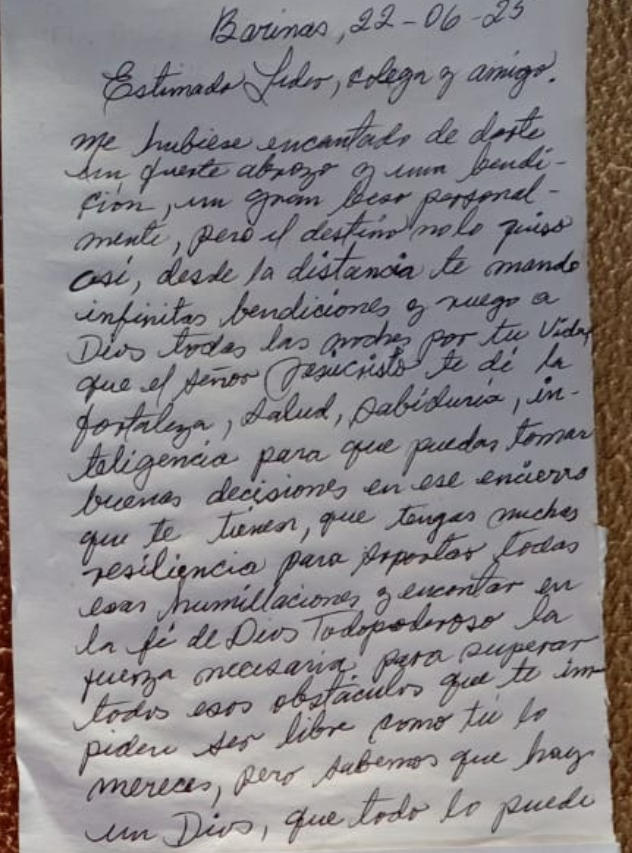 Barinas, 22-06-25
Estimado Lider, colega y amigo.
me hubiese encantado de darte
un fuerte abrazo y una bendi-
ción, un gran beso personal-
mente, pero el destino no lo quiso
así, desde la distancia te mando
infinitas bendiciones y ruego a
Dios todas las noches por tu vida,
que el señor Jesucristo te dé la
fortaleza, salud, sabiduría, in-
teligencia para que puedas tomar
buenas decisiones en ese encierro
que te tienen, que tengas muchas
resiliencia para soportar todas
esas humillaciones y encontar en
la fé de Dios Todopoderoso la
fuerza necesaria para superar
todos esos obstáculos que te im
piden ser libre como tú lo
mereces, pero sabemos que hay
un Dios, que todo lo puede